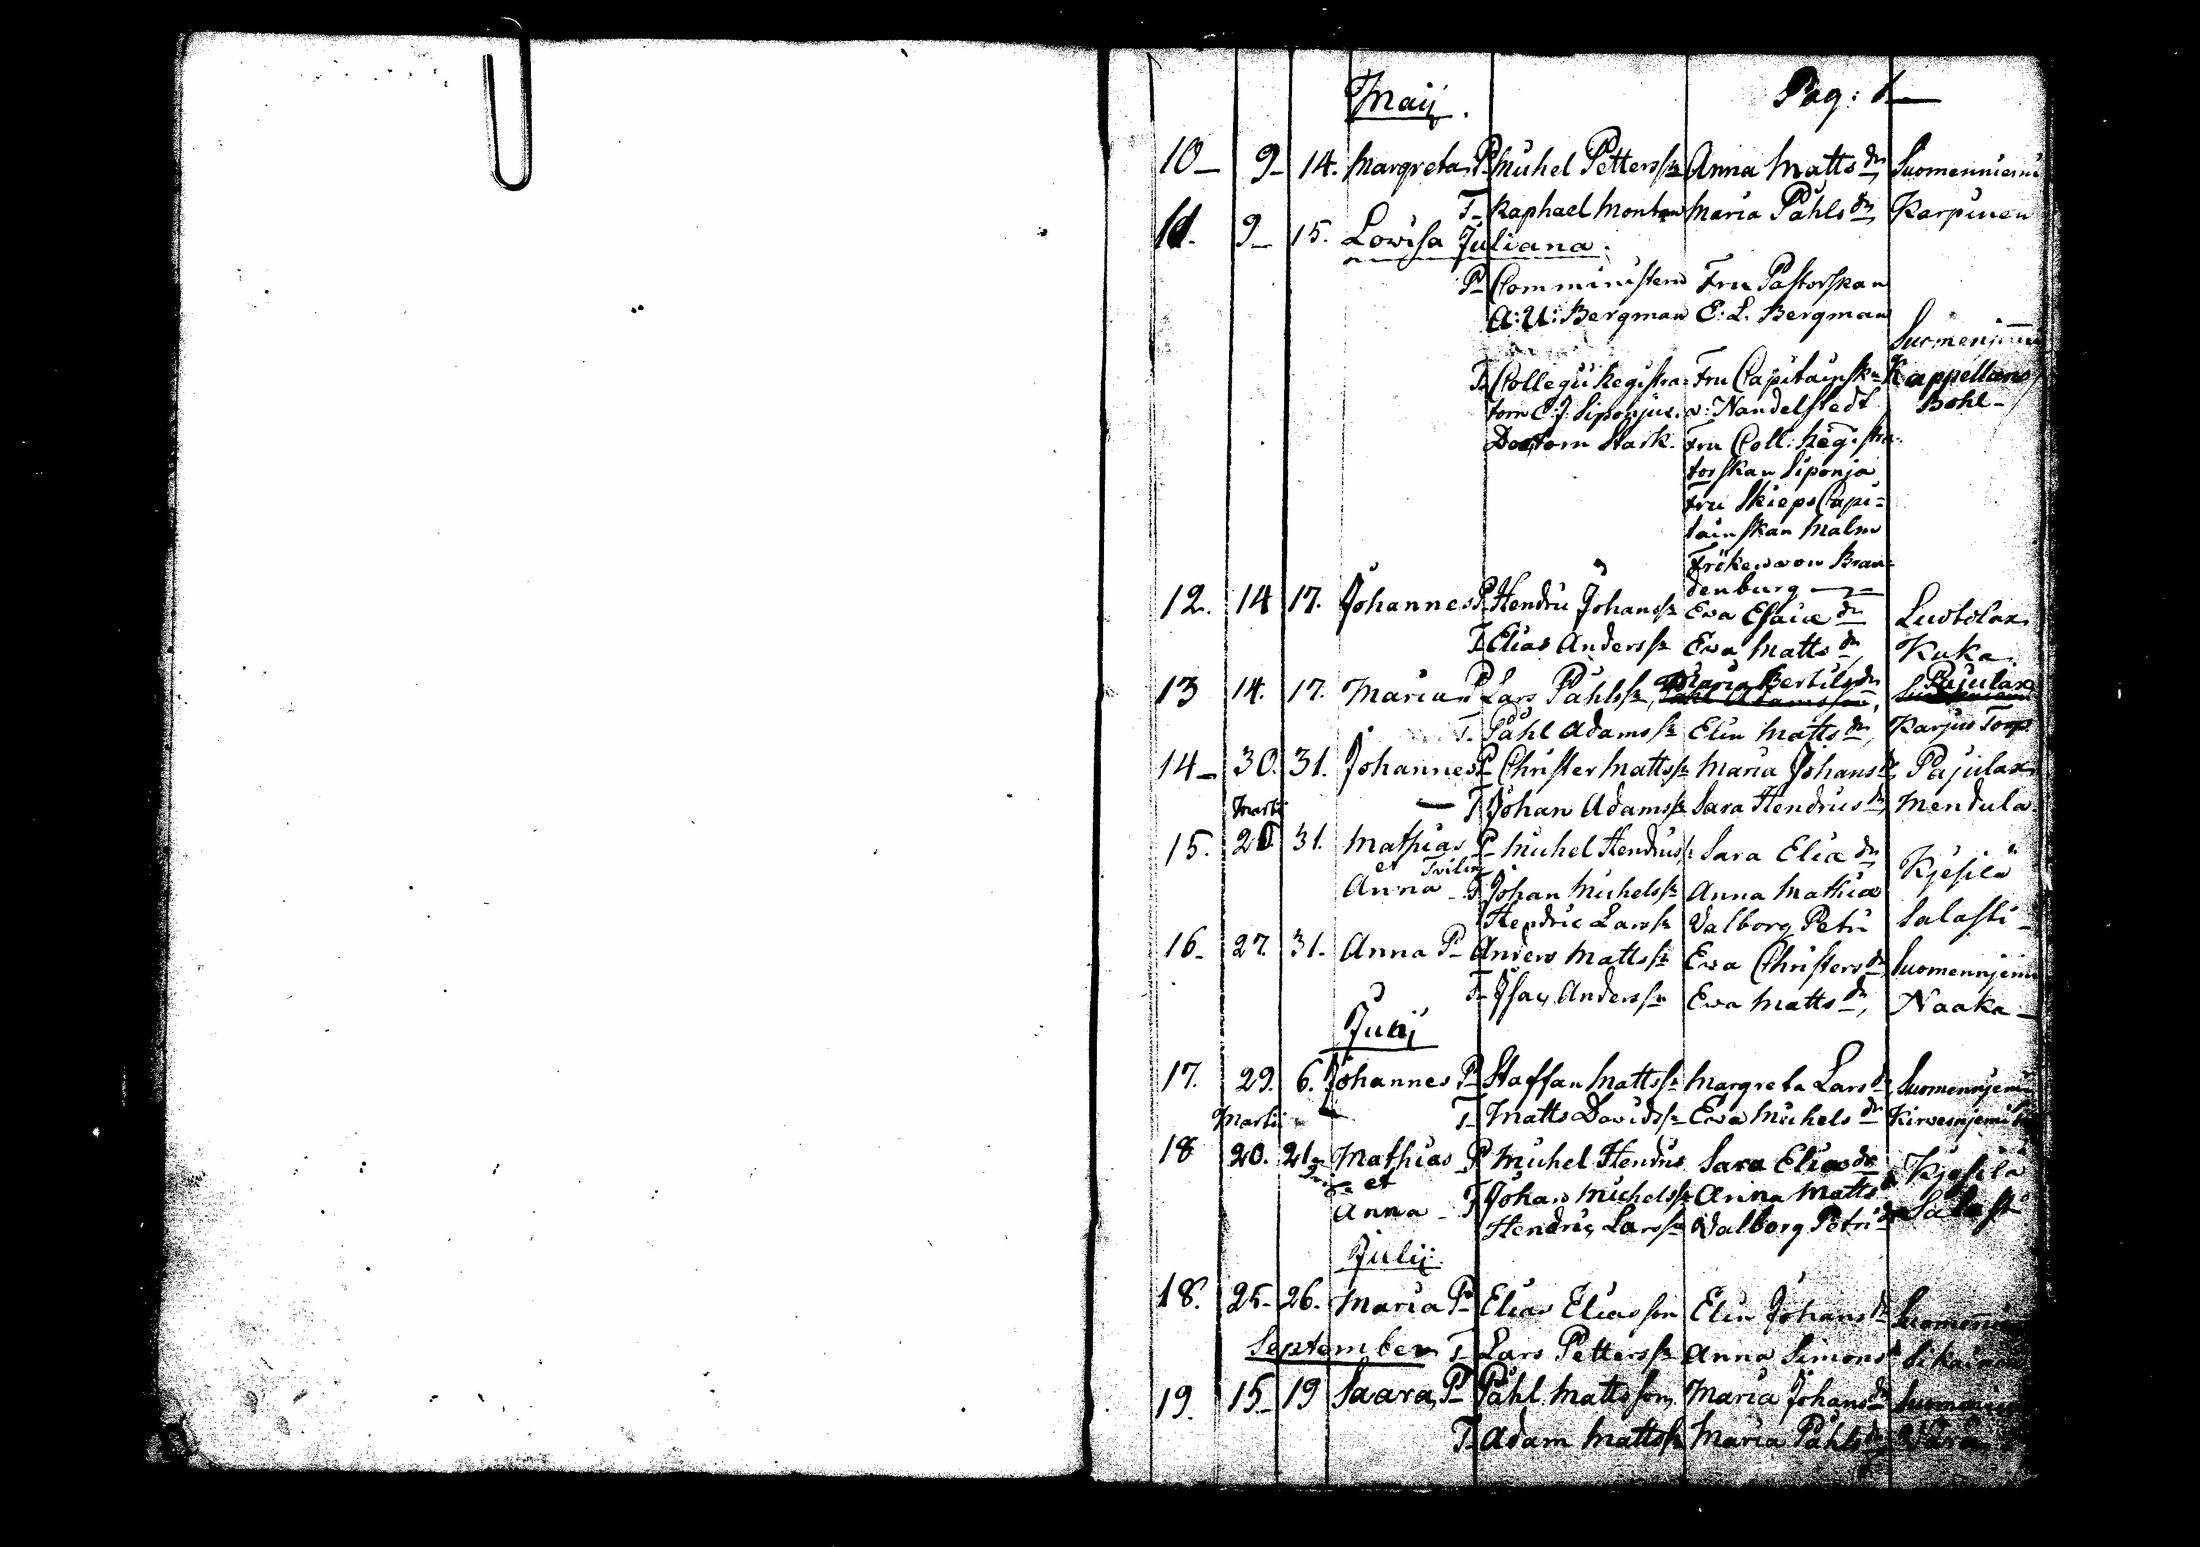 Maij. Pag: 1
10 9 14. Margreta P Michel Petterss: Anna Matts dr Suomenniemi
T Raphael Montan Maria Påhls dr Karpinen
11. 9 15. Lovisa Juliana.
P Comministern Fru Pastorskan
A: U: Bergman E: L. Bergman
T Collegii Registra- Fru Capitainskn Kappellans
torn C: J. Siponjus. v: Nandelstedt Bohl
Doctorn Stark. Fru Coll: Registra-
torskan Siponja
Fru Skieps Capi-
tainskan Malm
Fröken von Bran-
denburg
12. 14 17. Johannes P Hendric Johanss: Eva Esaiæ dr Luotolax
T Elias Anderss: Eva Matts dr Kuka
13 14. 17. Maria P Lars Påhlss: Maria Bertils dr Pajulax
T. Påhl Adamss: Elin Matts dr, Karjus Torp
14 30. 31. Johannes P Christer Mattss: Maria Johans dr Pajulax
T Johan Adamss: Sara Hendrics dr, Mendula
Martii
15. 20. 31. Mathias P Michel Hendrics: Sara Eliæ dr Kjesilä
et Tviling
Anna T Johan Michelss: Anna Mathiæ
Hendric Larss: Valborg Petri Salasti
16. 27. 31. Anna P Anders Mattss: Eva Christers dr Suomennjemi
T Isac Anderss: Eva Matts dr, Naaka
Junij
17. 29. 6. Johannes P Staffan Mattss: Margreta Lars dr Suomennjemi
Martii T Matts Davidss: Eva Michels dr
18 20. 21 Mathias P Michel Hendrics Sara Elias dr Kjesilä
et
Anna T Johan Michelss: Anna Matts dr Salasti
Hendric Larss: Valborg Petri dr
Julij
18. 25. 26. Maria P Elias Eliasson Elin Johans dr
September T Lars Petterss: Anna Simons dr
19. 15 19 Saara P Påhl Mattsson, Maria Johans dr
T Adam Mattss: Maria Påhls dr